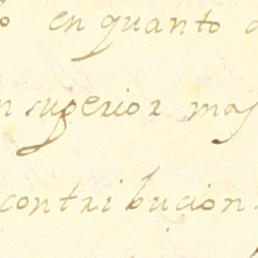 en quanto
superior mas
contribucion.